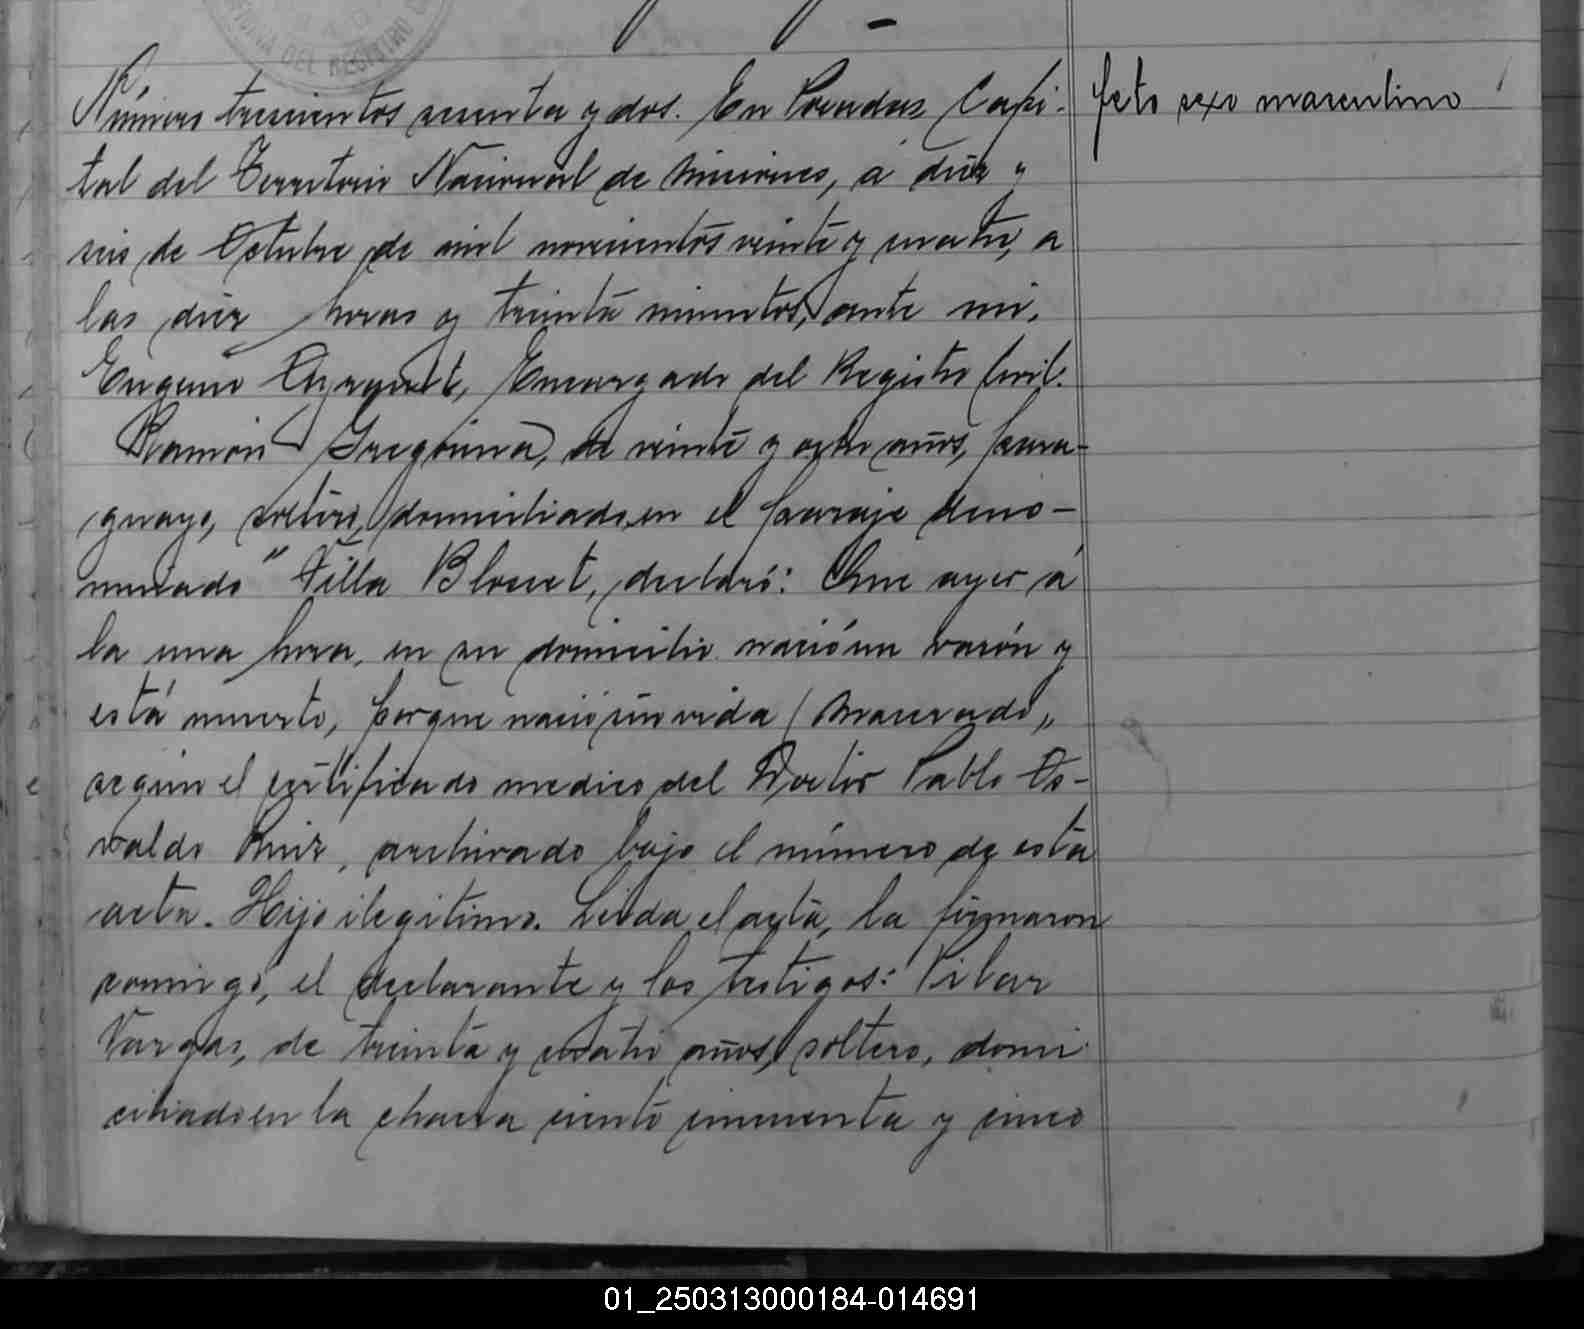 OFICINA DEL REGISTRO
feto sexo masculino
Número trescientos sesenta y dos. En Posadas, Capi-
tal del Territorio Nacional de Misiones, á diez y
seis de Octubre de mil novecientos veinte y cuatro, a
las diez horas y treinta minutos, ante mi,
Eugenio Encargado del Registro Civil.
Ramón de veinte y ocho años, para-
guayo, soltero, domiciliado en el paraje deno-
minado "Villa Blosset, declaró: Que ayer á
la una hora, en su domicilio nació un varón y
está muerto, porque nació sin vida (macerado,,
según el certificado medico del Doctor Pablo Os-
valdo Ruiz, archivado bajo el número de esta
acta. Hijo ilegitimo. Leida el acta, la firmaron
comigo, el declarante y los testigos: Pilar
Vargas, de treinta y cuatro años, soltero, domi
ciliado en la chacra ciento cincuenta y cinco
01_250313000184-014691